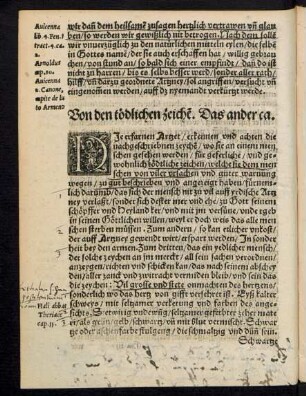 Auicenna
lib. 4. Fen. 1
tract. 4. ca.
2.
Arnoldus
cap. 10.
Auicenna
2. Canone,
capite de la
to Armeno
wir dañ dem heilsamẽ zusagen hertzlich vertrawen vñ glau
ben/ so werden wir gewißlich nit betrogen. Nach dem sollẽ
wir vnuerzüglich zu den natürlichen mitteln eylen/ die selbẽ
in Gottes namẽ/ der sie auch erschaffen hat/ willig gebrau
chen/ von stund an/ so bald sich einer empfindt/ dañ do ist
nicht zu harren/ bis es selbs besser werd/ sonder aller rath/
hülff/ vñ darzu geordnete Artzney/ sol angriffen/ versucht vñ
eingenommen werden/ auff dz nyemandt verkürtzt werde.
Von den tödlichen zeichẽ. Das ander ca.
DIe erfarnen Artzet/ erkennen vnd achten die
nachgeschribnen zeychẽ/ wo sie an einem men
schen gesehen werden/ für geferliche/ vnd ge
wohnlich tödtliche zeichen/ welche sie dem men
schen von viler vrsachen/ vnd guter warnung
wegen/ zu gut beschriben vnd angezeigt haben/ fürnem-
lich darũb/ das sich der mensch nit zu vil auff yrdische Artz
ney verlaß/ sonder sich dester mer vnd ehe/ zu Gott seinem
schöpffer vnd Heyland ker/ vnd mit jm versüne/ vnd ergeb
in seinen Göttlichen willen/ weyl er doch weis das alle men
schen sterben müssen. Zum andern/ so kan etlicher vnkost/
der auff Artzney gewendt wirt/ erspart werden. In sonder
heit bey den armen. Zum dritten/ das ein yedlicher mensch/
der solche zeychen an jm merckt/ all sein sachen verordnen/
anzeygen/ richten/ vnd aufschreiben laß/ damit nach seinẽ
den/ aller zanck vnd zweitracht vermiden bleib/ vnd sein das
die zeychen: Vil grosse vnd stete onmachten des hertzens/
sonderlich wo das hertz von gifft versehret ist. Vast kalter
schweys/ mit seltzamer verkerung vnd ferben des ange-
sichts. Stetwirig vndewũg/ seltzamer gefärbter zeher mate
ri/ als grün/ geld/ schwartz/ vñ mit blut vermischt. Schwar
tze oder aschenfarbe stulgeng/ die schmaltzig vnd dün sein.
Schwartze
Hali abbas
Theoricæ
cap. 11.